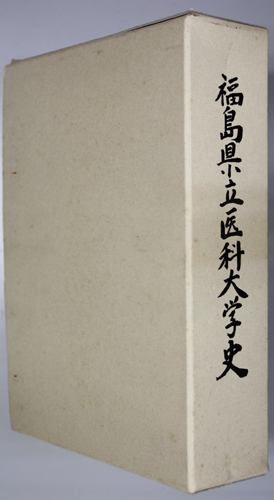 福島県立医科大学史